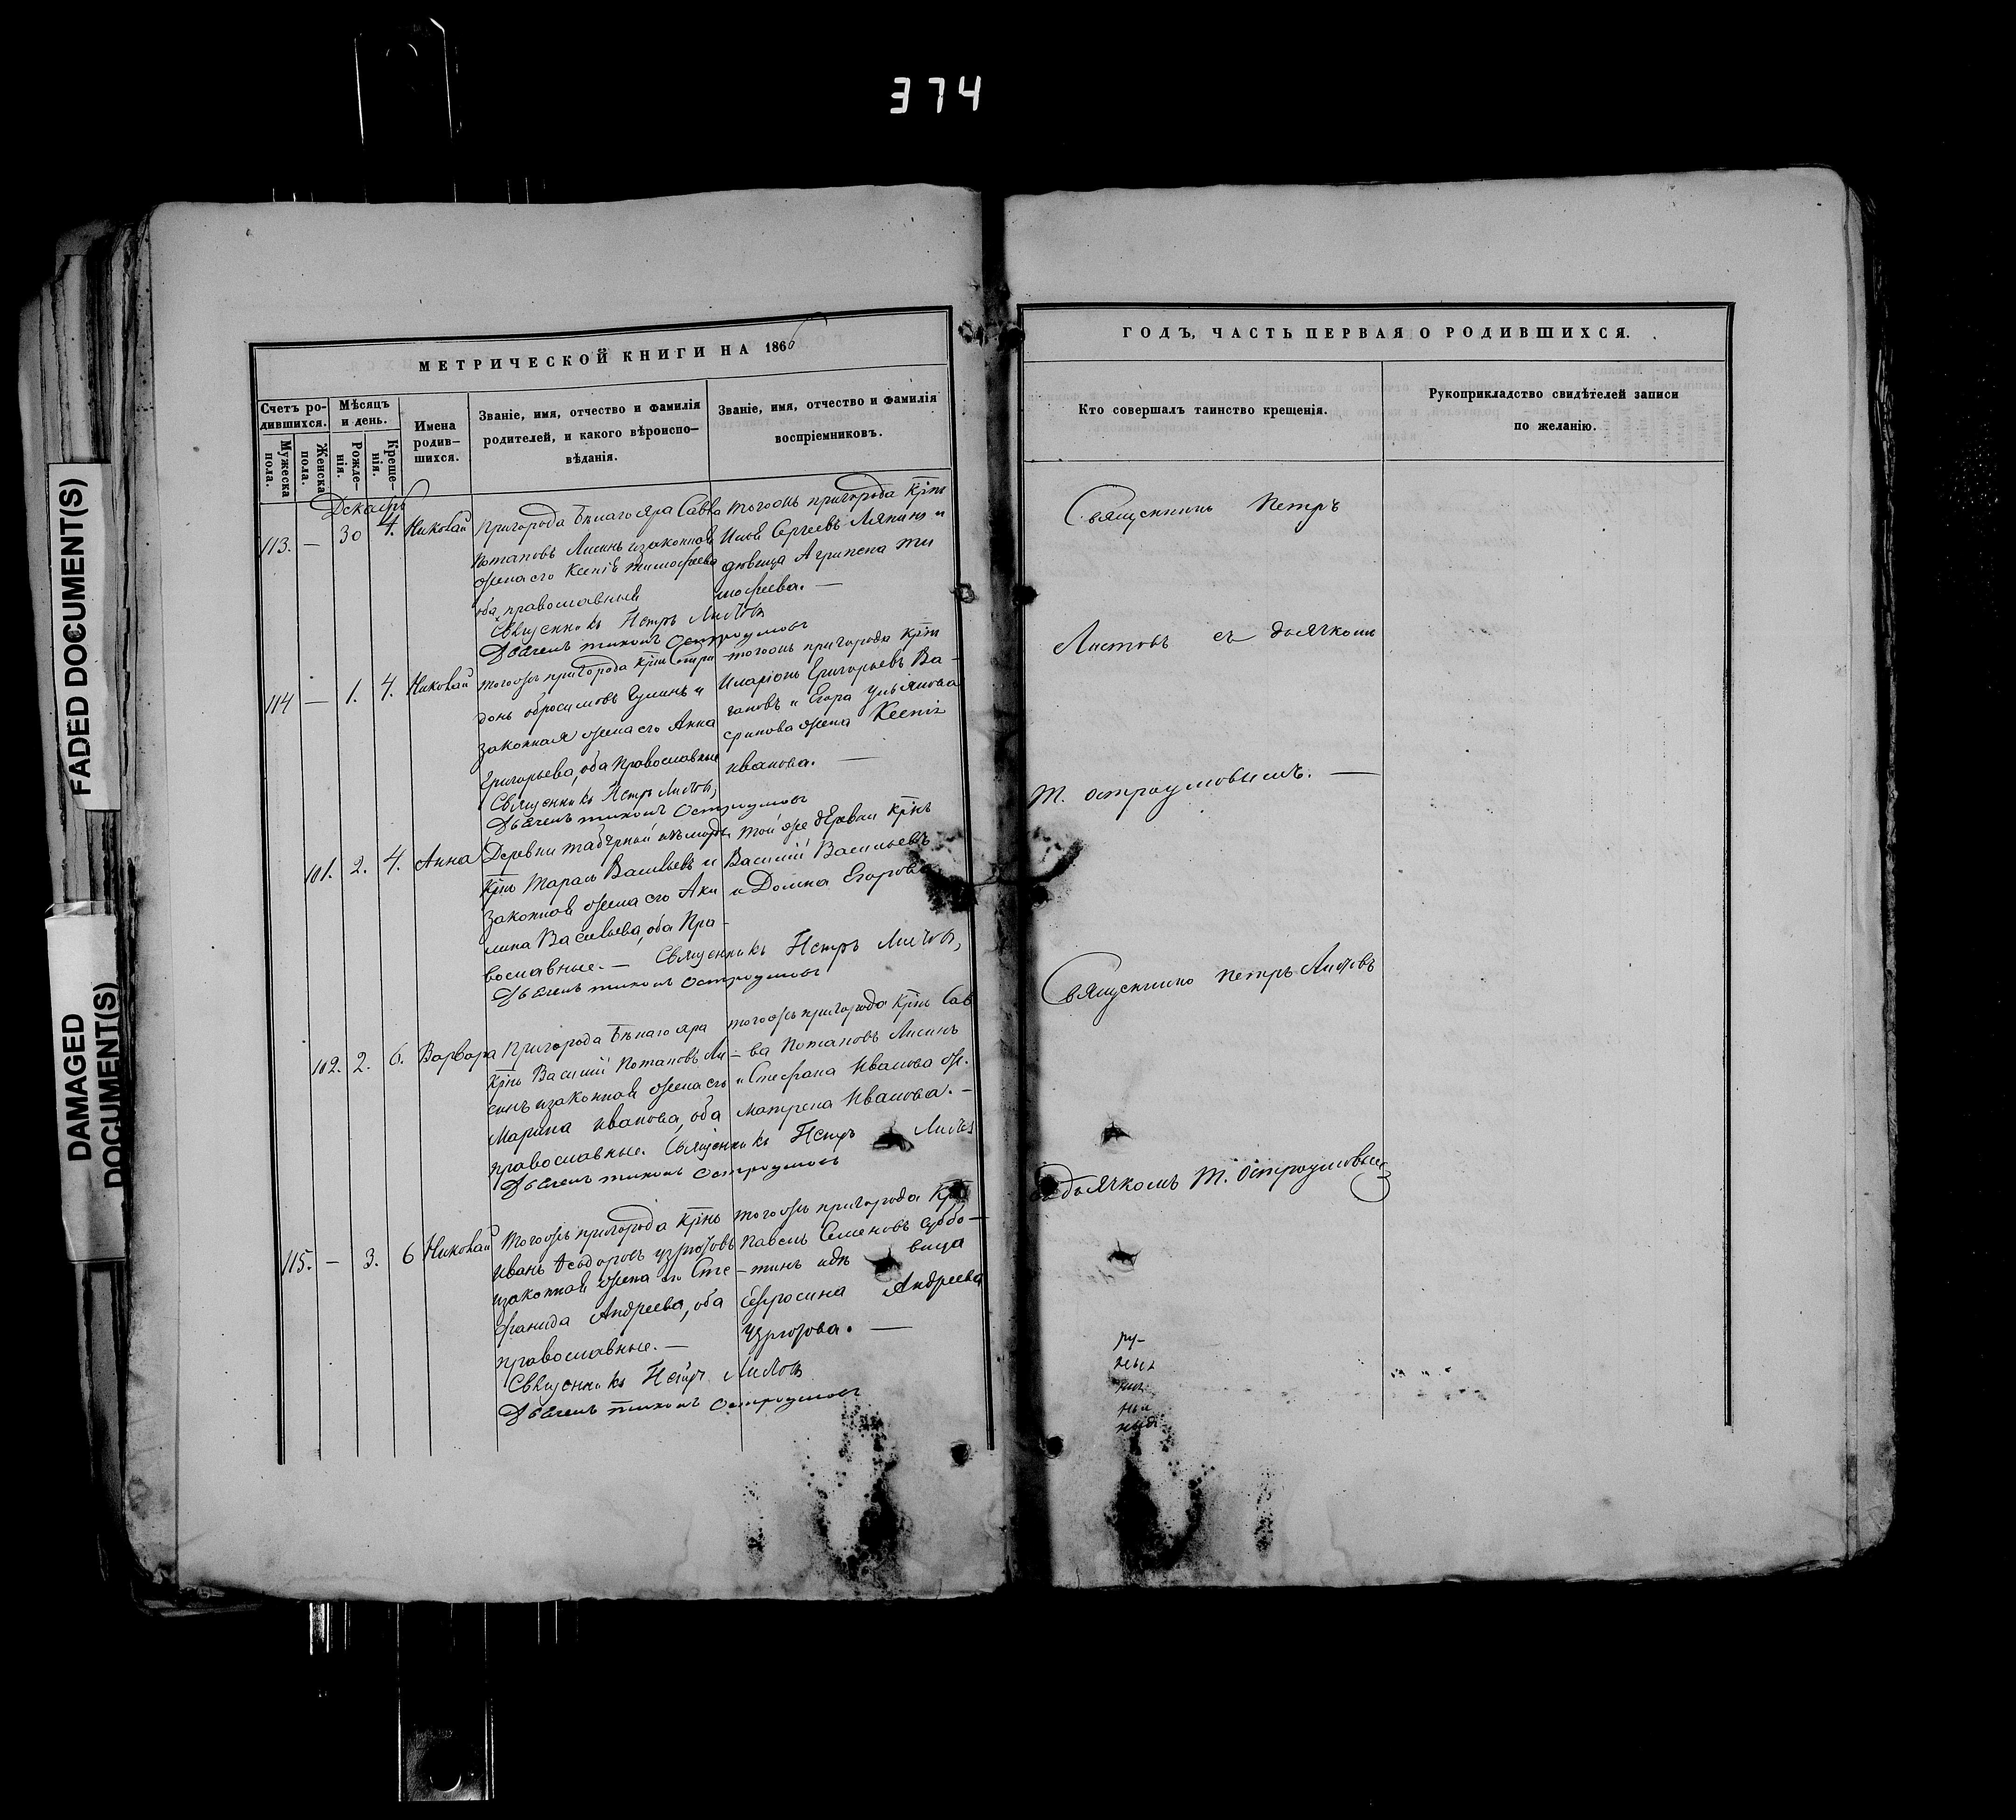 374
FADED DOCUMENT(S)
DAMAGED
DOCUMENT(S)
МЕТРИЧЕСКОЙ КНИГИ НА 1866
Счетъ ро-
дившихся.
Мужеска
пола.
Женска
пола.
Мѣсяцъ
и день.
Рожде-
нія.
Креще-
нія.
Имена
родив-
шихся.
Званіе, имя, отчество и фамилія
родителей, и какого вѣроиспо-
вѣданія.
Званіе, имя, отчество и фамилія
воспріемниковъ.
Декабрь
113. — 30 4. Николай
Пригорода Бѣлаго яра Савва
Потаповъ Лисинъ изаконная
жена его Ксенія Тимофеева
оба православныи
Священникъ Петръ Листовъ
Дьячекъ Тихонъ Остроумовъ
тогожъ пригорода Крiнъ
Сергеевъ Ляпинъ и
девица Агрипена Ти
мофеева. —
114 — 1. 4. Николай
тогожъ пригорода Крiнъ Спири
донъ обросимовъ и
законная жена его Анна
Григорьева, оба Православные
Священникъ Петръ Листовъ,
Дьячекъ Тихонъ Остроумовъ
тогожъ пригорода Крiн
Иларiонъ Григорьевъ Ва-
гановъ и Егора Ульянова
жена Ксенiя
иванова. —
101. 2. 4. Анна
Деревни
Крiнъ Тарасъ Васильевъ и
законная жена его Аку
лина Васильева, оба Пра-
вославные. — Священникъ Петръ Листовъ,
Дьячекъ Тихонъ Остроумовъ
той же деревни Крiнъ
Василiй Васильевъ
и Домна Егорова
102. 2. 6. Варвара
Пригорода Бѣлаго яра
Крiнъ Василiй Потаповъ Ли-
синъ изаконная жена его
Марина иванова, оба
православные. Священникъ Петръ Листов
Дьячекъ Тихонъ Остроумовъ
тогожъ пригорода Крiнъ Сав
ва Потаповъ Лисинъ
и Стефана Иванова ж.
Матрена Иванова. —
115. — 3. 6 Николай
Тогожъ пригорода Крiнъ
Иванъ Ѳедоровъ
изаконная жена его Сте-
фанида Андреева, оба
православные. —
Священникъ Петръ Листовъ
Дьячекъ Тихонъ Остроумовъ
тогожъ пригорода Крiн
Павелъ Семеновъ Суббо-
тинъ идѣ вица
Ефросинa Андреева
ГОДЪ, ЧАСТЬ ПЕРВАЯ О РОДИВШИХСЯ.
Кто совершалъ таинство крещенія.
Рукоприкладство свидѣтелей записи
по желанію.
Священникъ Петръ
Листовъ съ дьячкомъ
Т. Остроумовымъ. —
Священникъ Петръ Листовъ
съ дьячкомъ Т. Остроумовым